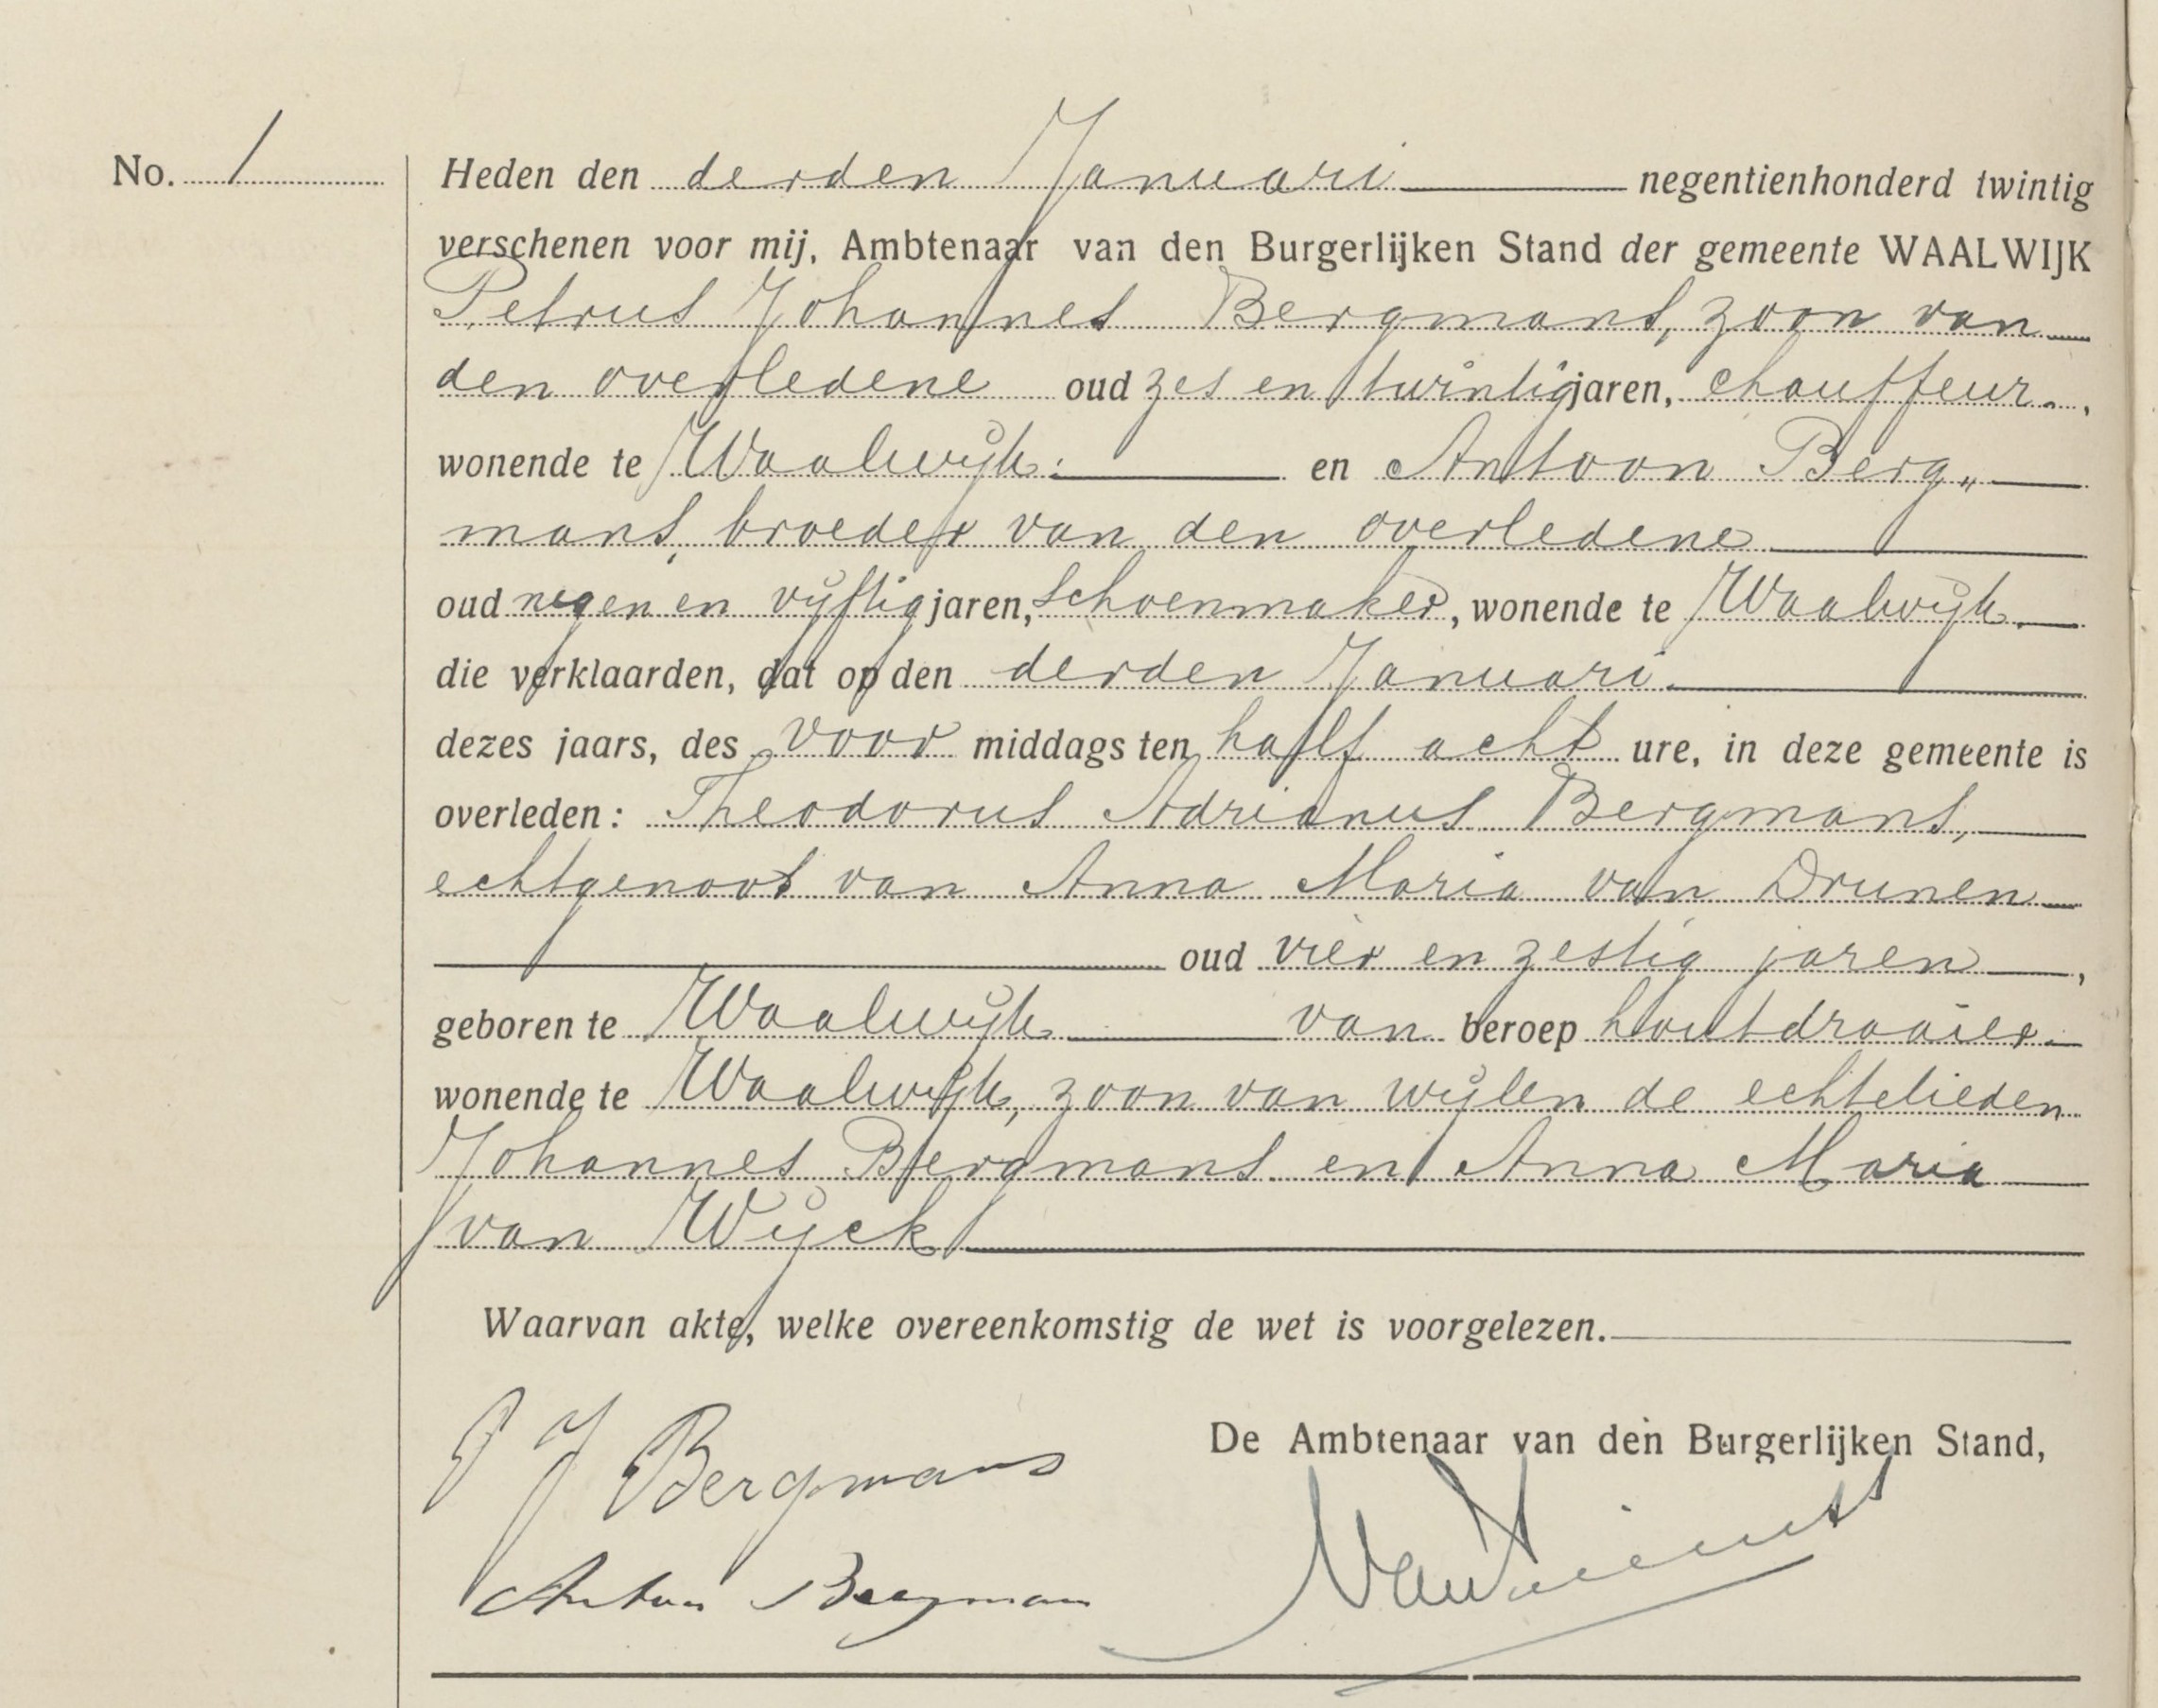 No. 1
Heden den derden Januari negentienhonderd twintig
verschenen voor mij, Ambtenaar van den Burgerlijken Stand der gemeente WAALWIJK
Petrus Johannes Bergmans, zoon van
den overledene oud zes en twintig jaren, chauffeur.,
wonende te Waalwijk: en Antoon Berg„
mans, broeder van den overledene
oud negen en vijftig jaren, schoenmaker, wonende te Waalwijk.
die verklaarden, dat op den derden Januari.
dezes jaars, des voor middags ten half acht ure, in deze gemeente is
overleden: Theodorus Adrianus Bergmans,
echtgenoot van Anna Maria van Drunen
oud vier en zestig jaren,
geboren te Waalwijk van beroep houtdraaier.
wonende te Waalwijk, zoon van wijlen de echtelieden
Johannes Bergmans en Anna Maria
van Wijck
Waarvan akte, welke overeenkomstig de wet is voorgelezen.
P J Bergmans
De Ambtenaar van den Burgerlijken Stand,
Antoon Bergmans